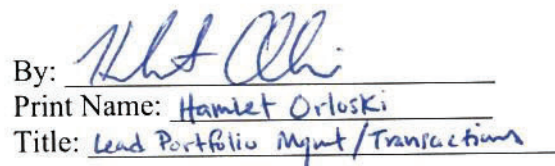 By:
Print Name: Hamlet Orloski
Title: Lead Portfolio Mgmt/Transactions